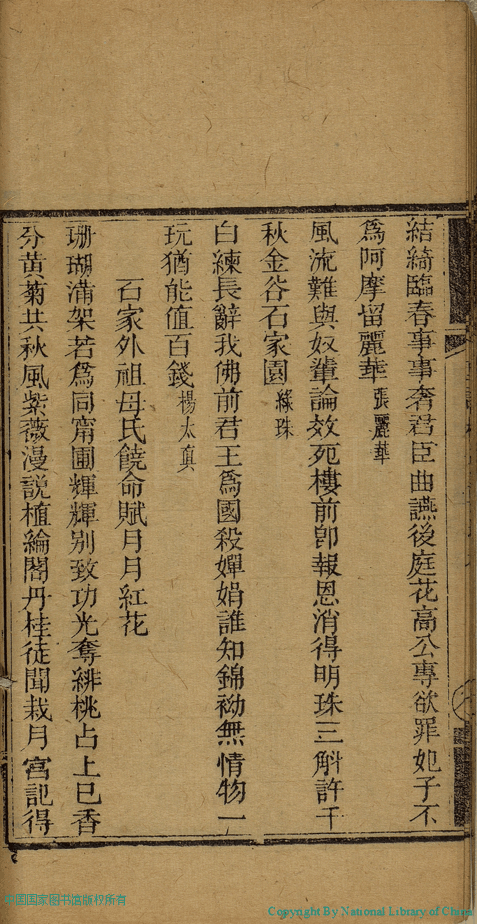 結綺臨春事事奢君臣曲讌後庭花高公專欲罪妲子不
爲阿摩留麗華張麗華
風流難與奴輩論效死樓前即報恩消得明珠三斛許千
秋金谷石家園綠珠
白練長辭我佛前君王爲國殺嬋娟誰知錦袎無情物一
玩猶能值百錢楊太真
石家外祖母氏饒命賦月月紅花
珊瑚滿架若爲同齋圃輝輝别致功光奪緋桃占上巳香
分黄菊共秋風紫薇漫説植綸閣丹桂徒聞栽月宮記得
中国国家图书馆版权所有
Copyright By National Library of China